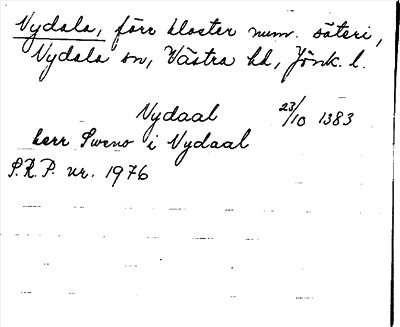 Nydala, förr kloster num. säteri,
Nydala sn, Västra hd, Jönk. l.
Nydaal 23/10 1383
herr Sweno i Nydaal
S.R.P. nr. 1976